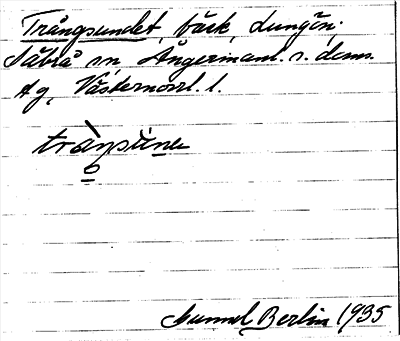 Trångsundet, bäck, Lungön,
Säbrå sn Ångermanl. s. doms.
Ag, Västernorrl. l.
tràŋsúne
o
Gunnel Berlin 1935